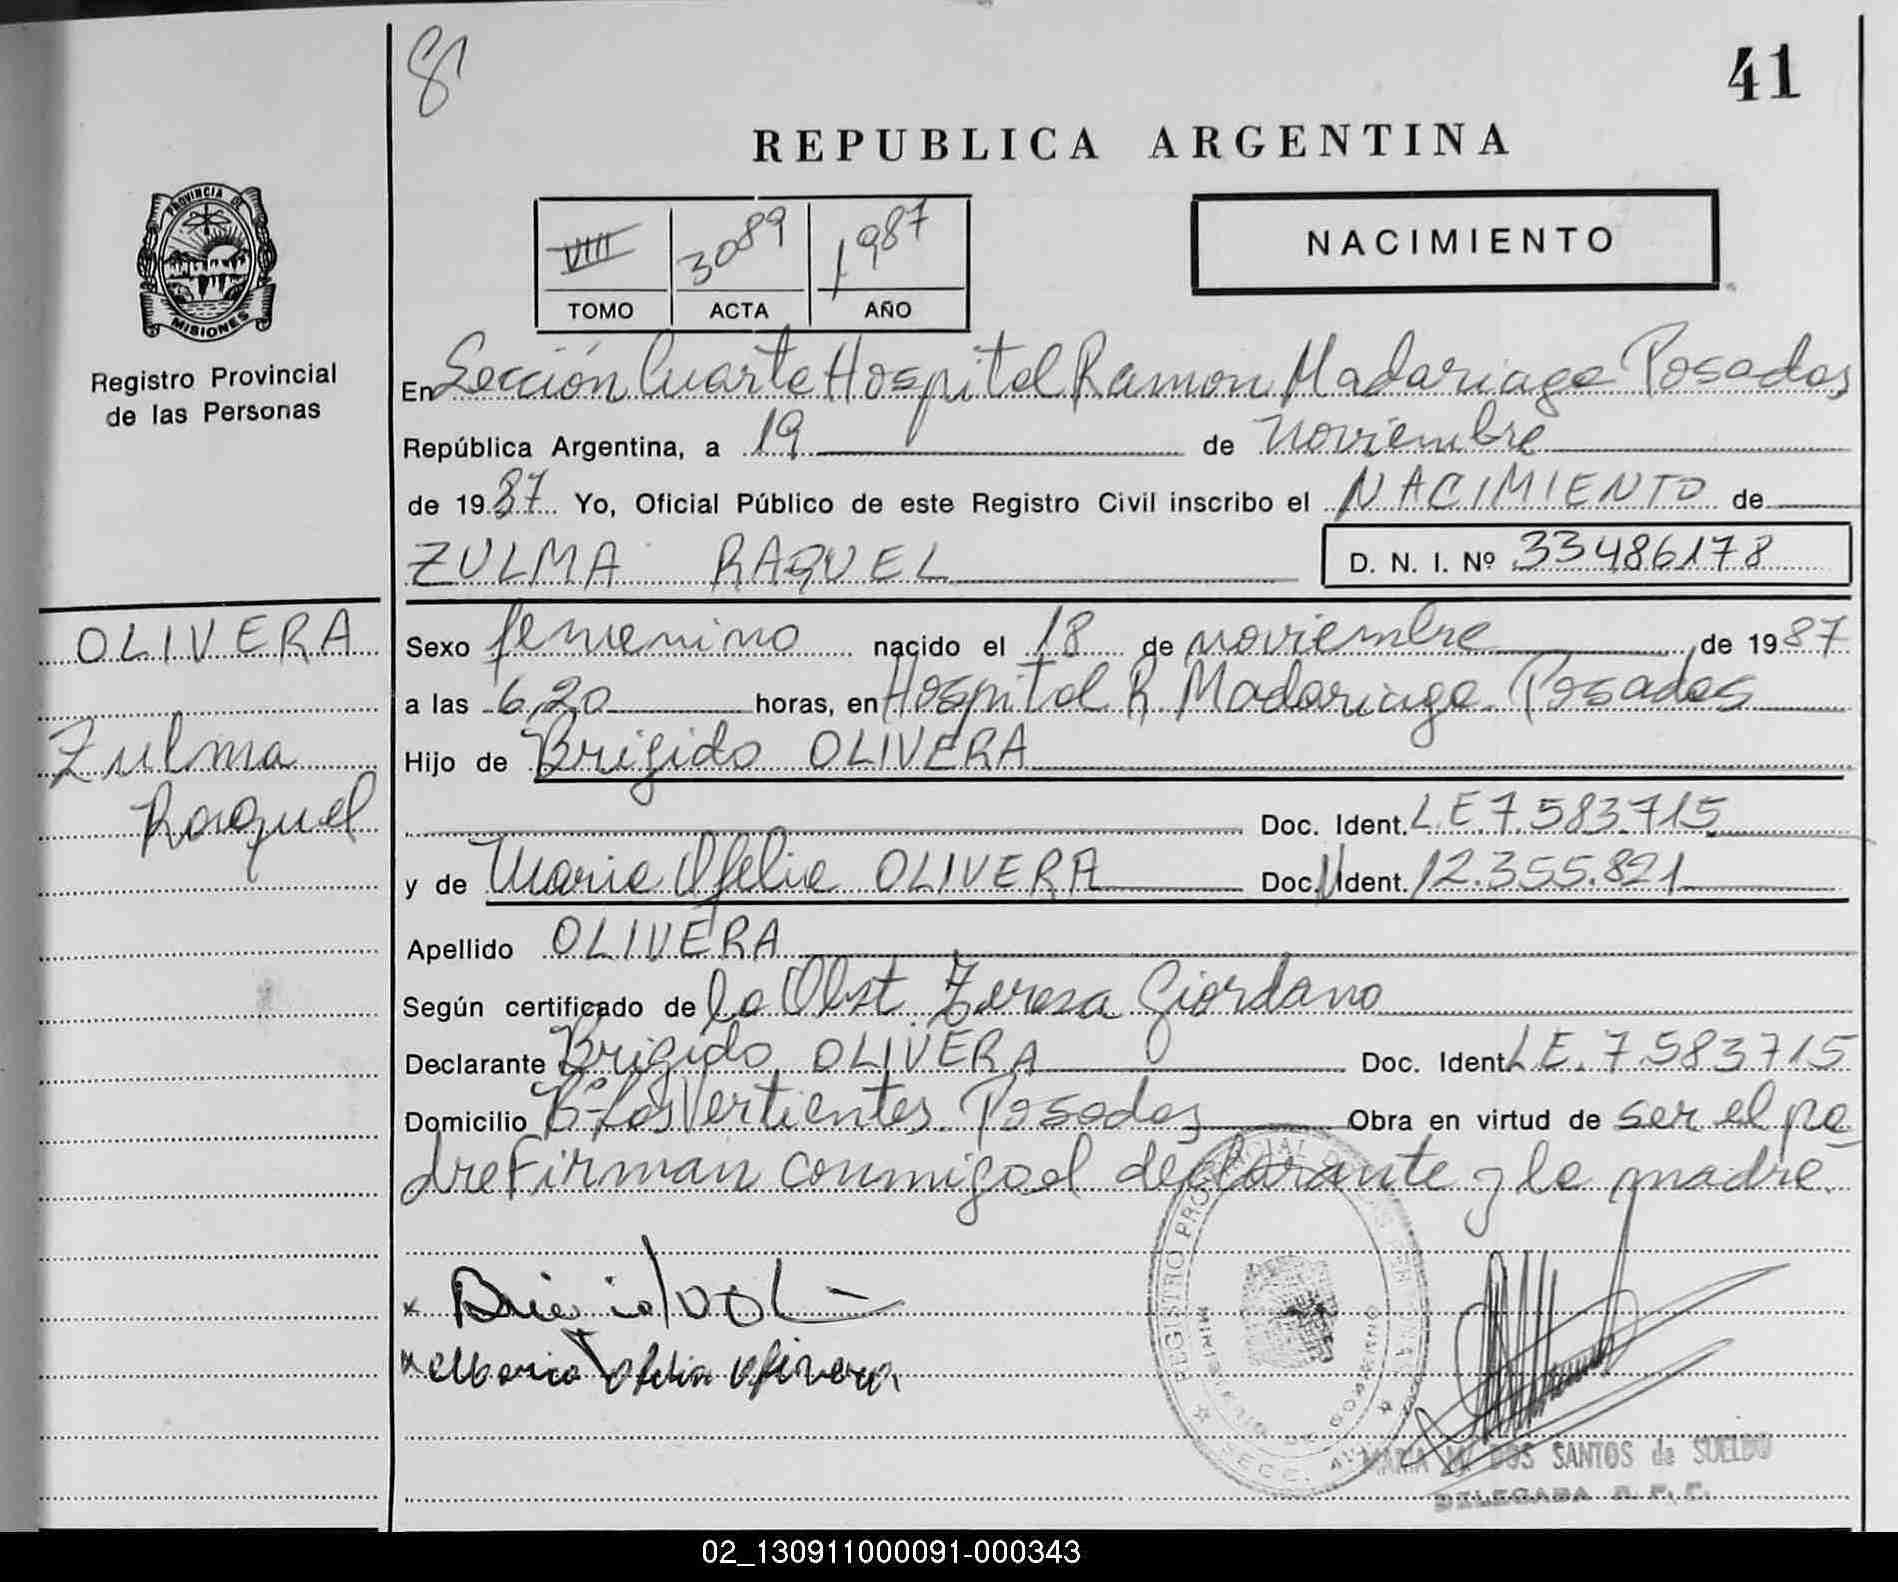 8
41
REPUBLICA ARGENTINA
PROVINCIA DE
MISIONES
Registro Provincial
de las Personas
VIII 3089 1987
TOMO ACTA AÑO
NACIMIENTO
En Sección Cuarta Hospital Ramon Madariaga Posadas
República Argentina, a 19 de Noviembre
de 1987 Yo, Oficial Público de este Registro Civil inscribo el NACIMIENTO de
ZULMA RAQUEL D. N. I. Nº 33486178
OLIVERA
Zulma
Raquel
Sexo femenino nacido el 18 de noviembre de 1987
a las 6,20 horas, en Hospital R Madariaga Posadas
Hijo de Brigido OLIVERA
Doc. Ident. L.E.7.583.715
y de Maria Ofelia OLIVERA Doc. N Ident. 12.355.821
Apellido OLIVERA
Según certificado de la Obst. Teresa Giordano
Declarante Brigido OLIVERA Doc. Ident. L E. 7.583715
Domicilio Bº Las Vertientes. Posadas Obra en virtud de ser el pa
dre Firman conmigo el declarante y la madre.
x
x Maria Ofelia Olivera
REGISTRO PROVINCIAL DE LAS PERSONAS
MINISTERIO DE GOBIERNO
SECC.
MARIA DOS SANTOS de SUELDO
DELEGADA R. P. C.
02_130911000091-000343